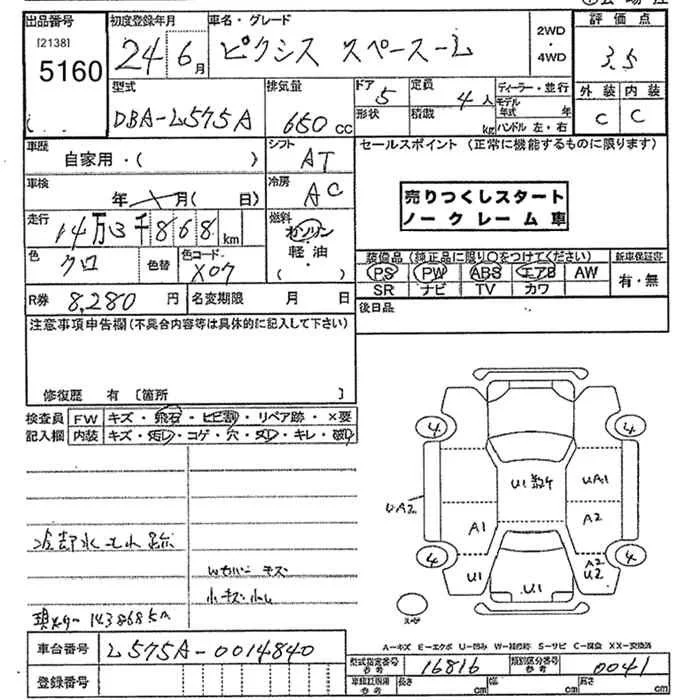 出品番号 初度登録年月 車名・グレード 2WD・4WD 評価点
[2138]
5160 24 6月 ピクシス スペース-L 3.5
型式 排気量 ドア 5 定員 4人 ディーラー・並行 外装 内装
DBA-L575A 650cc 形状 積載 kg モデル年式 年 C C
ハンドル 左・右
車歴 自家用・( ) シフト AT セールスポイント (正常に機能するものに限ります)
車検 年 月( 日) 冷房 AC
売りつくしスタート
ノークレーム車
走行 14万3千868km 燃料 ガソリン・軽油 ( )
色 クロ 色替 色コード X07
装備品 (純正品に限り○をつけてください) 新車保証書
PS PW ABS エアB AW 有・無
SR ナビ TV カワ
R券 8,280円 名変期限 月 日 後日品
注意事項申告欄(不具合内容等は具体的に記入して下さい)
修復歴 有 [箇所 ]
検査員 FW キズ・飛石・ヒビ割・リペア跡・×要
記入欄 内装 キズ・汚レ・コゲ・穴・スレ・キレ・破レ
冷却水モレ跡
Wカバーキズ
小キズ小凹
143868km
4 4
U1 数ケ UA1
UA2 A1 A2
4 4
U1 A2 U2
U1
スペア
A-キズ E-エクボ U-凹ミ W-補修跡 S-サビ C-腐食 XX-交換済
車台番号 L575A-0014840 型式指定番号 参考 16816 類別区分番号 参考 0041
登録番号 車検証明書 参考 長さ cm 幅 cm 高さ cm